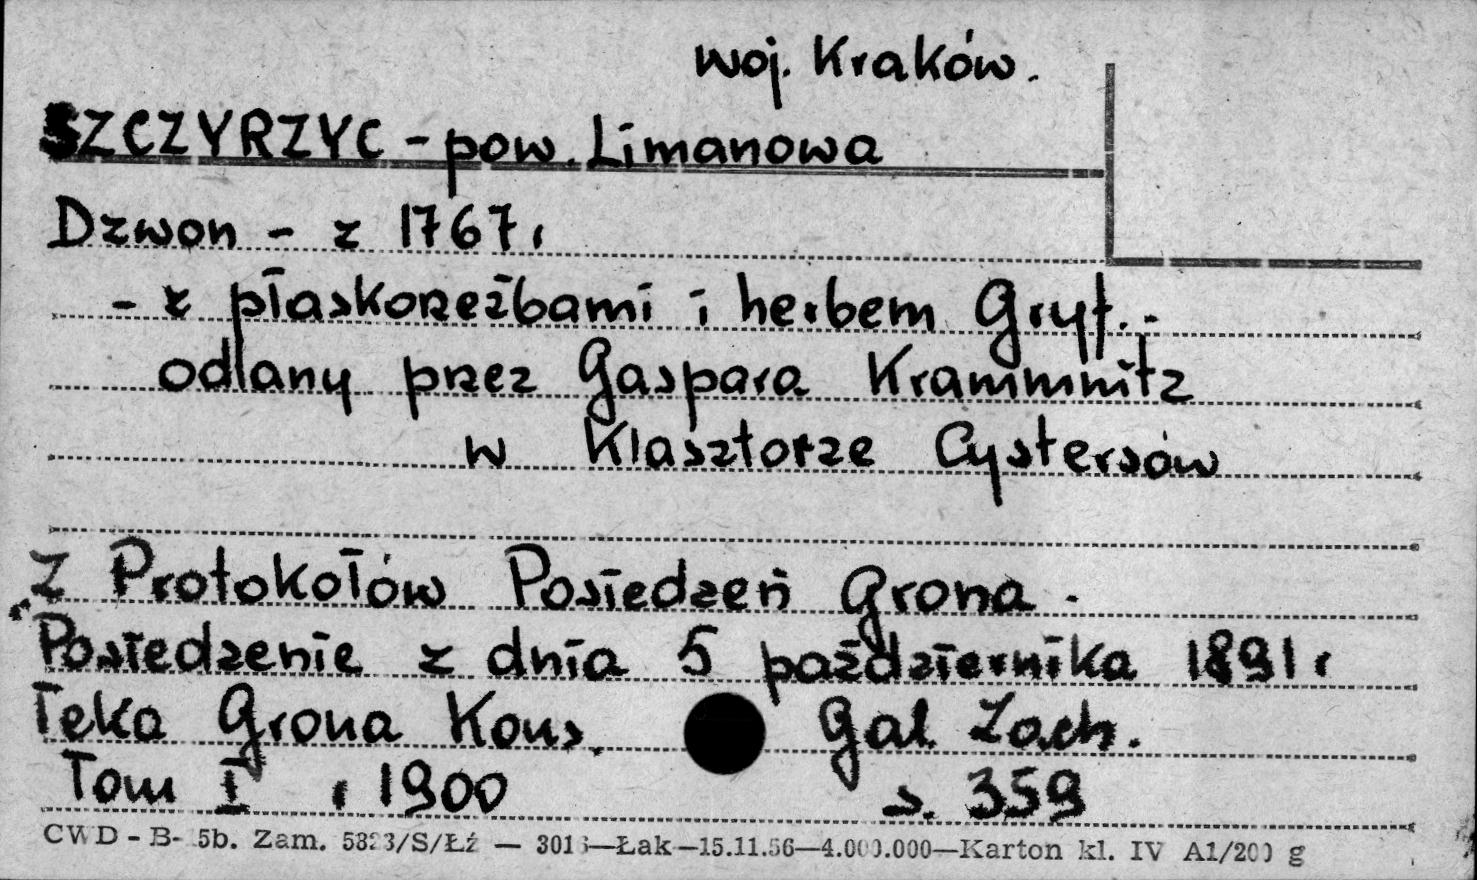 woj. Kraków.
SZCZYRZYC - pow. Limanowa
Dzwon - z 1767 r
- z płaskorzeźbami i herbem Gryf. -
odlany przez Gaspara Krammnitz
w Klasztorze Cystersów
Z Protokołów Posiedzeń Grona.
Posiedzenie z dnia 5 października 1891 r
Teka Grona Kons. Gal. Zach.
Tom I r 1900 s. 359
CWD - B- 5b. Zam. 5823/S/Łź — 3016—Łak—15.11.56—4.000.000—Karton kl. IV A1/200 g